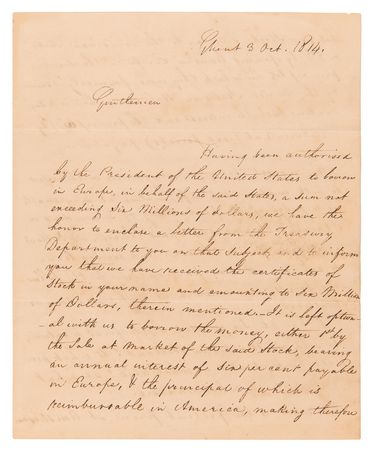 Ghent 3 Oct. 1814.
Gentlemen
Having been authorised
by the President of the United States to borrow
in Europe, in behalf of the said States, a sum not
exceeding Six Millions of dollars, we have the
honor to enclose a letter from the Treasury
Department to you on that Subject, and to inform
you that we have received the certificates of
Stock in your name and amounting to Six Million
of Dollars, therein mentioned — It is left option-
al with us to borrow the money, either 1st by
the Sale at market of the said Stock, bearing
an annual interest of six per cent payable
in Europe, & the principal of which is
reimbursable in America, making therefor